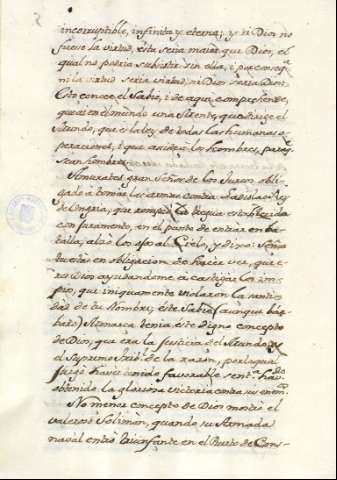 incorruptible, infinita y eterna; y si Dios no
fuese la virtud, esta seria maior que Dios, el
qual no podria subsistir sin ella, i por conseqª
ni la virtud seria virtud, ni Dios seria Dios.
Esto conoce el Sabio, i de aqui comprehende,
que ai en el mundo una Mente, que dirige el
Mundo, que es la ley de todas las humanas o-
peraciones, i que assiste a los hombres, para q
sean hombres.
Amurates gran Señor de los Turcos obli-
gado à tomar las armas contra Ladislao Rey
de Ungria, que rompio la tregua establecida
con juramento, en el punto de entrar en ba-
talla, alzò los ojos al Cielo, y dixo: Señor
tu estàs en obligacion de hacer ver, que
eres Dios ayudandome à castigar los im-
pios, que iniquamente violaron la santi-
dad de tu Nombre; este Sabio (aunque bar-
baro) Monarca tenia este digno concepto
de Dios, que era la Justicia del Mundo, y
el Supremo Tribl. de la razon, por la qual
juzgò haver tenido favorable sentª havdo
obtenido la gloriosa victoria contra su enemº
No menor concepto de Dios mostrò el
valeroso Solimàn, quando su Armada
naval entrò triunfante en el Puerto de Cons-